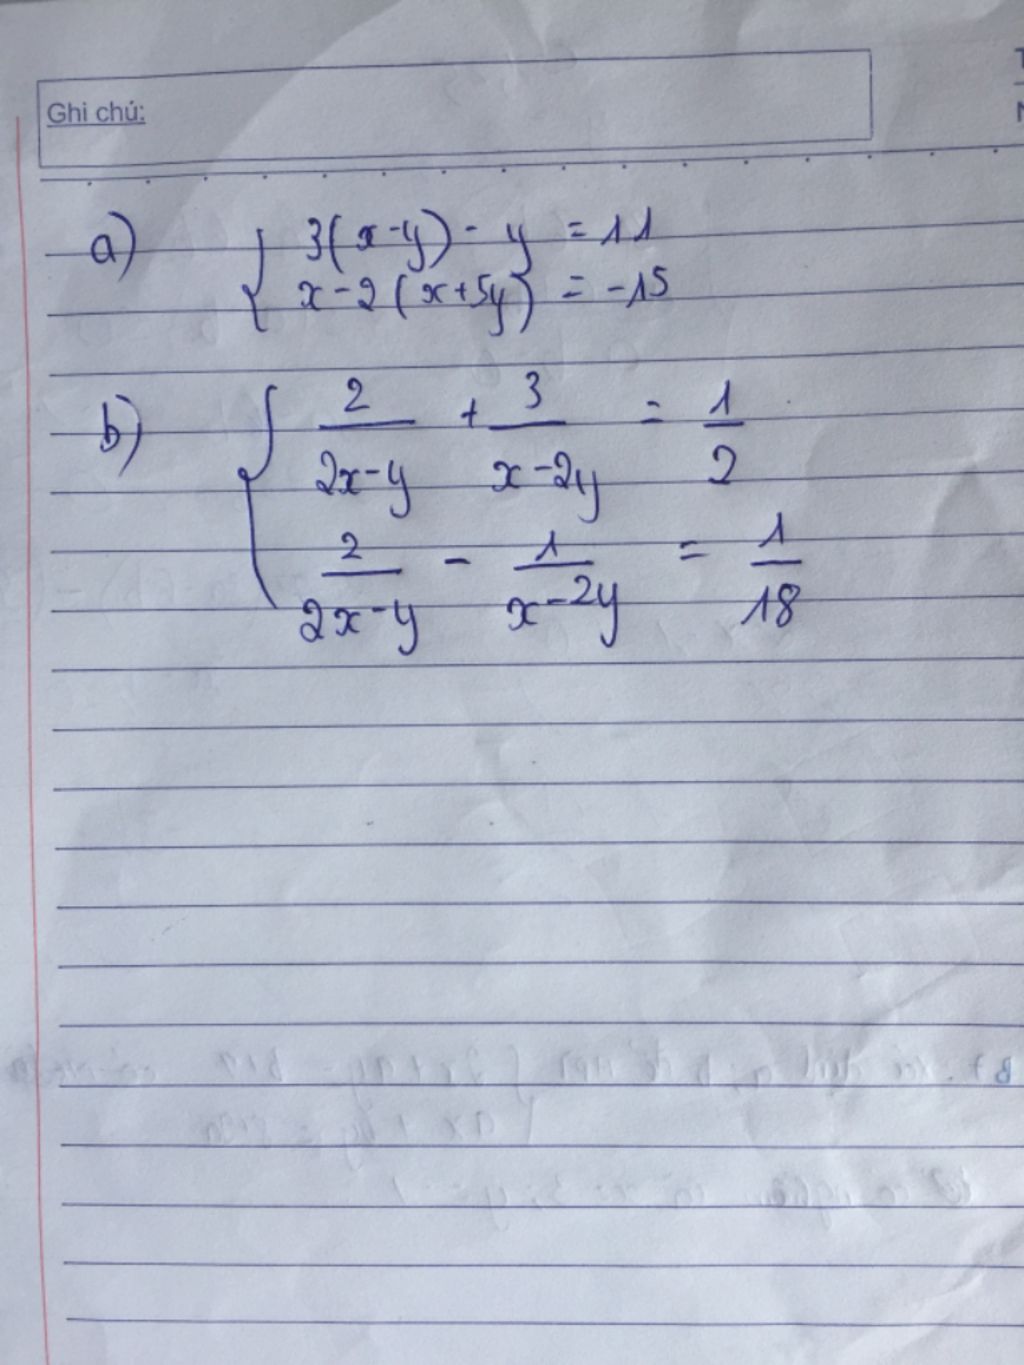 Ghi chú:
a) { 3(x-y) - y = 11
x - 2(x+5y) = -15
b) { 2/(2x-y) + 3/(x-2y) = 1/2
2/(2x-y) - 1/(x-2y) = 1/18